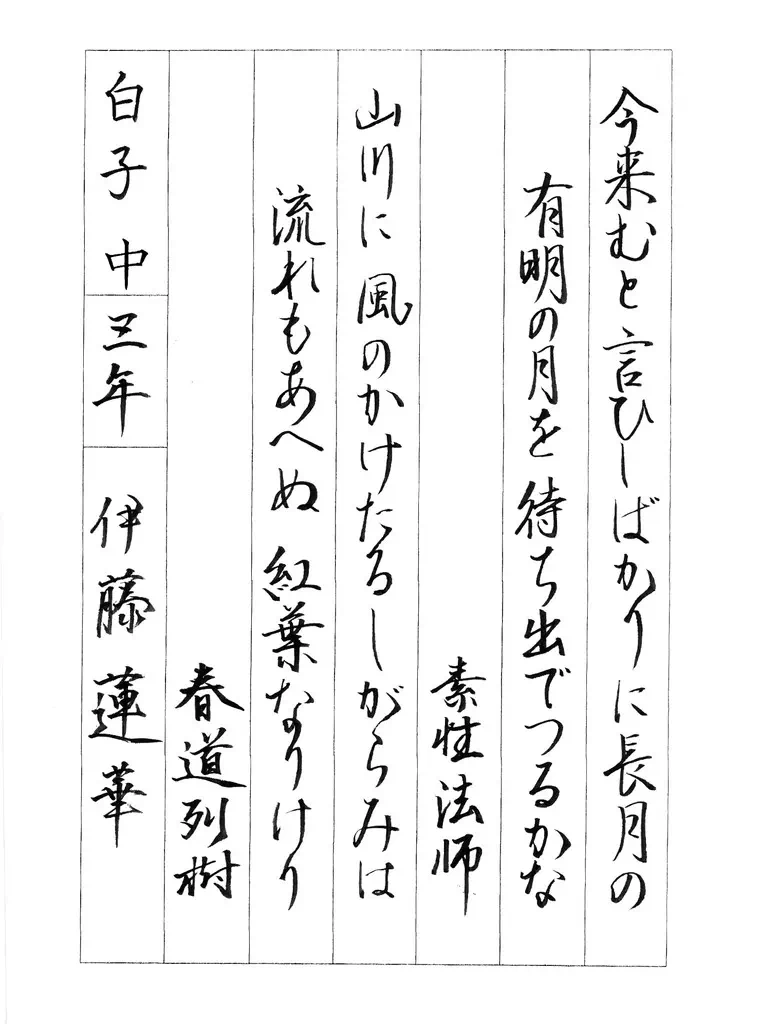 今来むと言ひしばかりに長月の
有明の月を待ち出でつるかな
素性法師
山川に風のかけたるしがらみは
流れもあへぬ紅葉なりけり
春道列樹
白子中三年伊藤蓮華